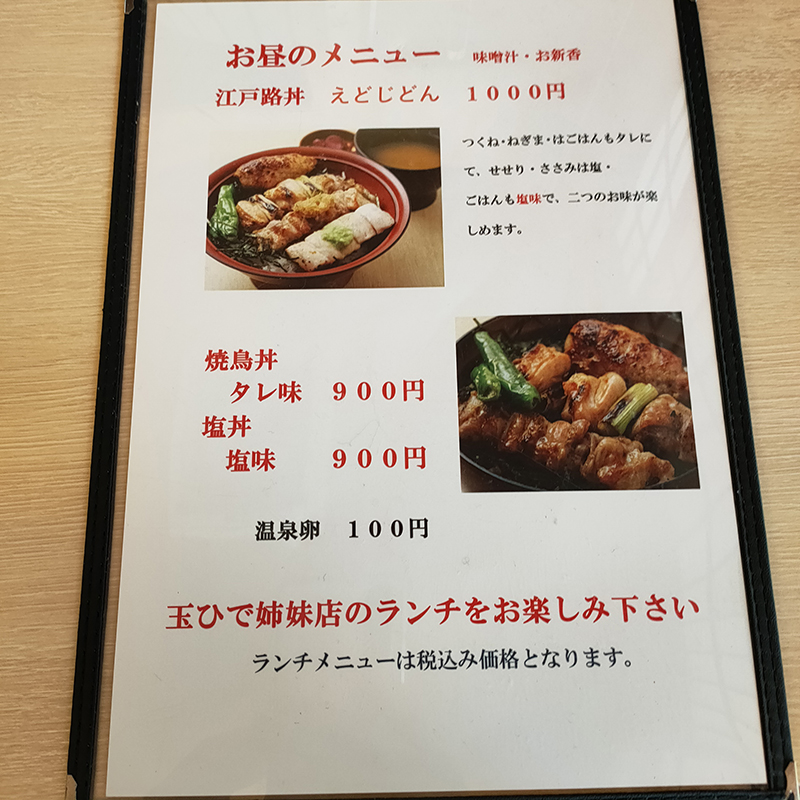 お昼のメニュー 味噌汁・お新香
江戸路丼 えどじどん 1000円
つくね・ねぎま・はごはんもタレに
て、せせり・ささみは塩・
ごはんも塩味で、二つのお味が楽
しめます。
焼鳥丼
タレ味 900円
塩丼
塩味 900円
温泉卵 100円
玉ひで姉妹店のランチをお楽しみ下さい
ランチメニューは税込み価格となります。